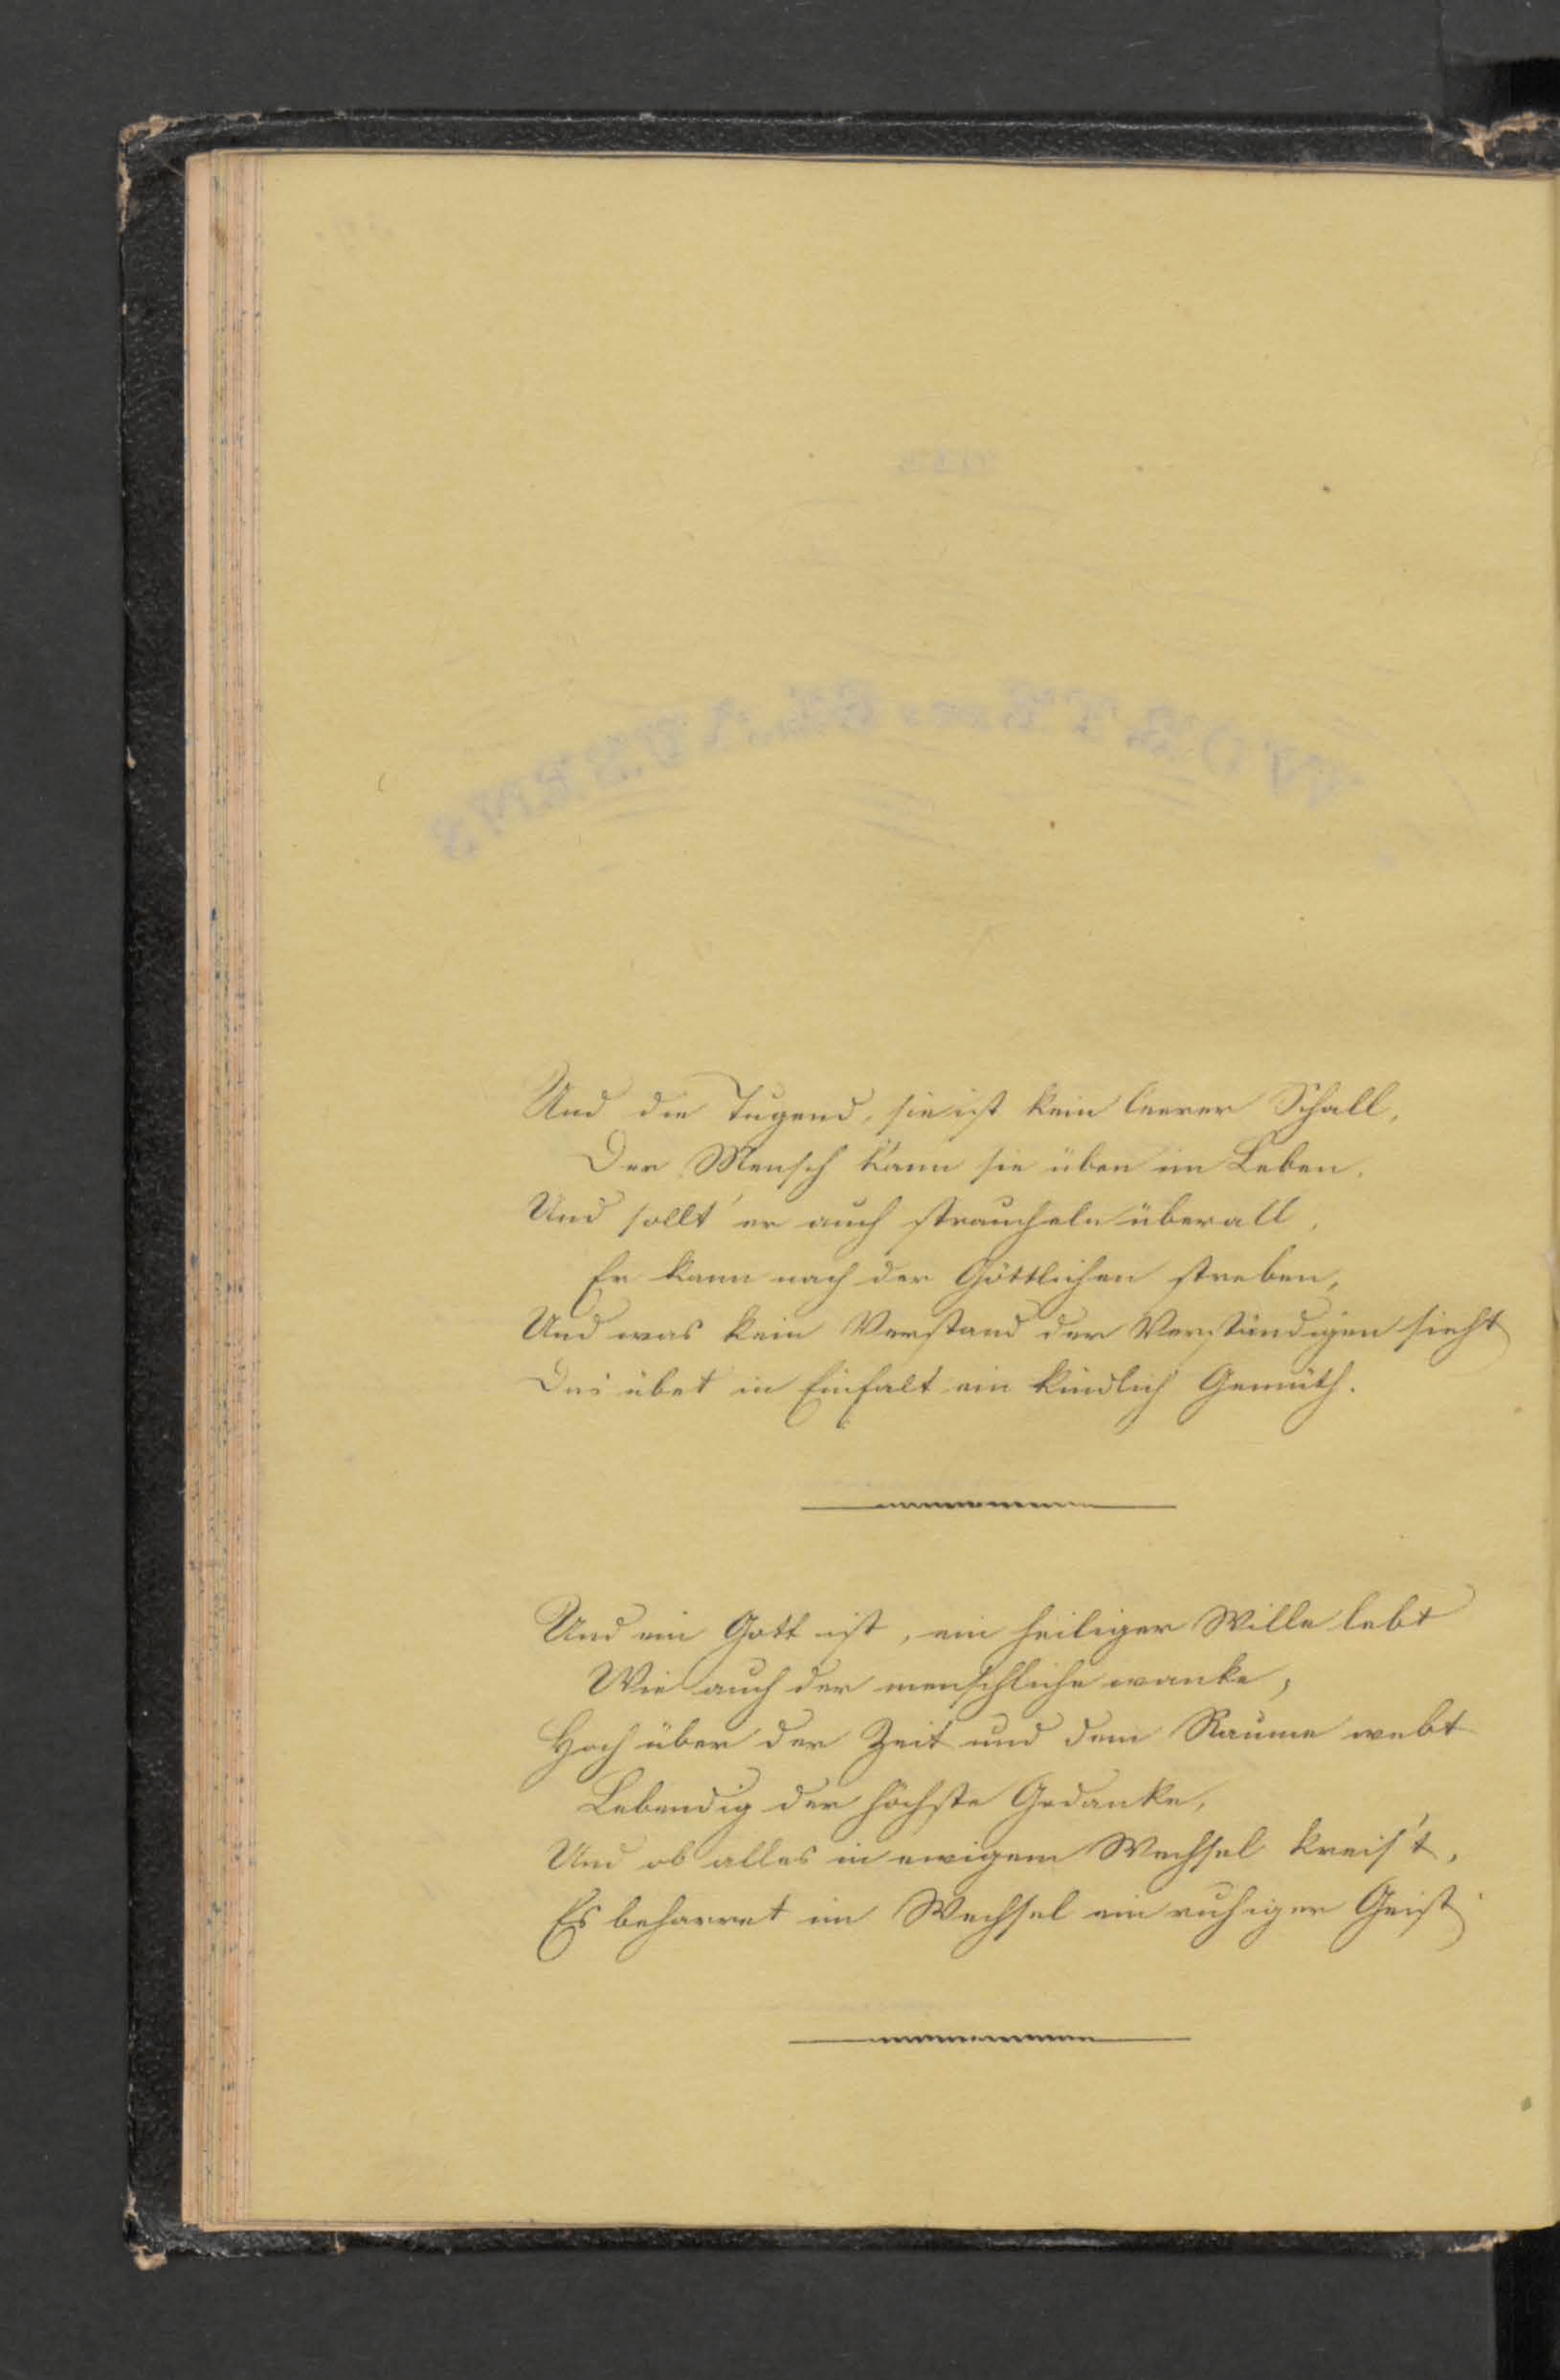 Und die Tugend, sie ist kein leerer Schall,
Der Mensch kann sie üben im Leben,
Und sollt' er auch straucheln überall,
Er kann nach der Göttlichen streben,
Und was kein Verstand der Verständigen sieht
Das übet in Einfalt ein kindlich Gemüth.
Und ein Gott ist, ein heiliger Wille lebt
Wie auch der menschliche wanke,
Hoch über der Zeit und dem Raume webt
Lebendig der höchste Gedanke,
Und ob alles in ewigem Wechsel kreis't,
Es beharret im Wechsel ein ruhiger Geist.